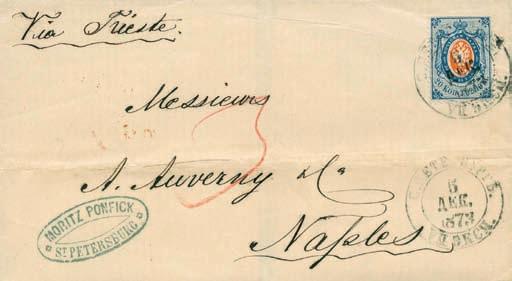 Via Trieste.
20 КОП.
Messieurs
3
A. Auverny & Co.
Naples
MORITZ PONFICK
ST PETERSBURG
5
ДЕК.
1873